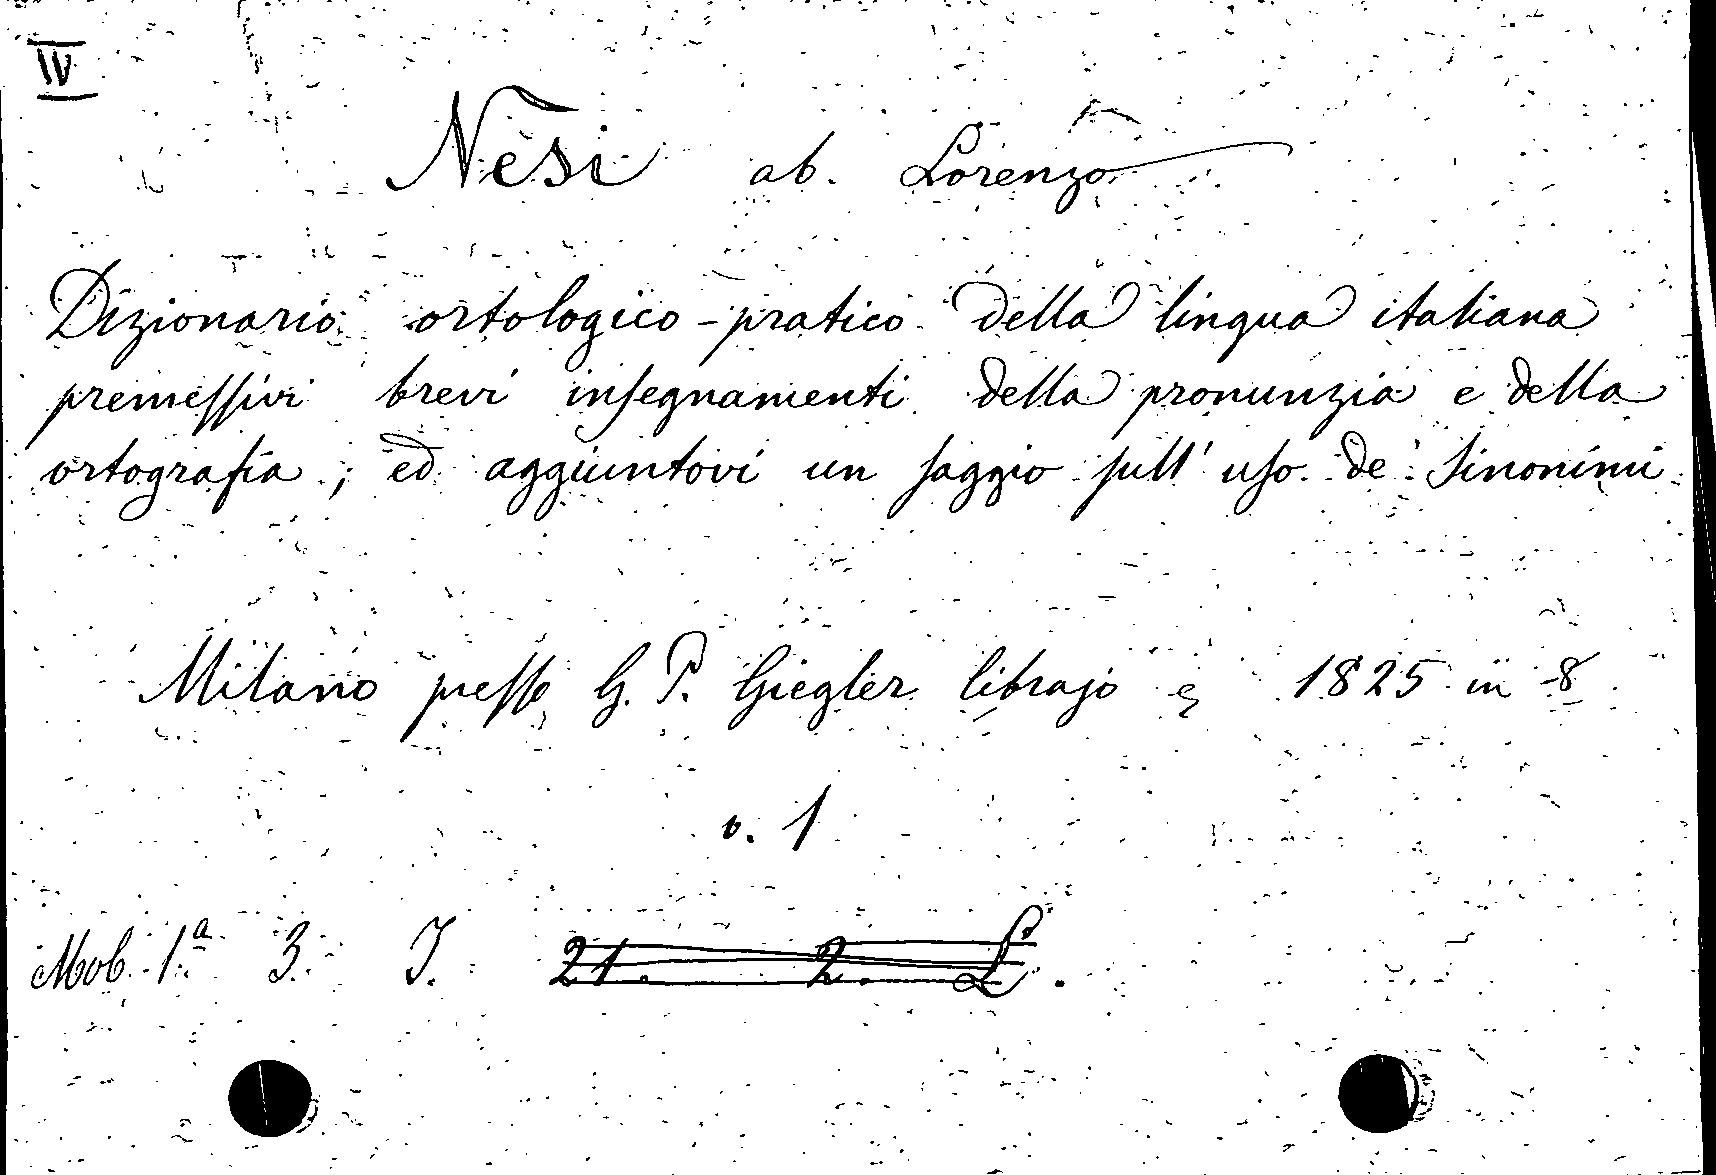 IV
Nesi ab. Lorenzo
Dizionario ortologico-pratico della lingua italiana
premeſsivi brevi inſegnamenti della pronunzia e della
ortografia; ed aggiuntovi un ſaggio ſull' uſo de' Sinonimi
Milano preſso G. P. Giegler librajo 1825 in 8
v. 1
Mob. 1ª 3. I. 21. 2. L.